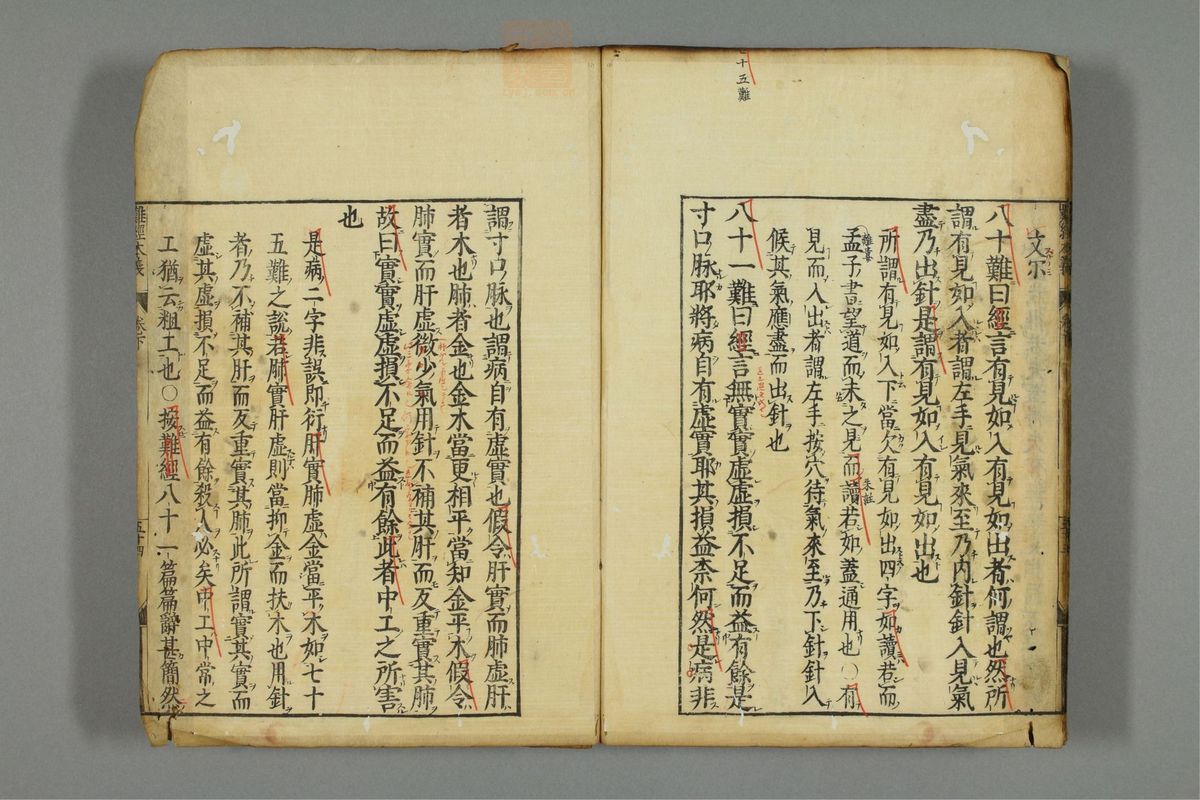 七十五難
八十難曰經言有見如入有見如出者何謂也然所
謂有見如入者謂左手見氣來至乃內針針入見氣
盡乃出針是謂有見如入有見如出也
所謂有見如入下當欠有見如出四字如讀若而
孟子書望道而未之見而讀若如蓋通用也○有
離婁
朱註
見而入出者謂左手按穴待氣來至乃下針針入
候其氣應盡而出針也
八十一難曰經言無實實虛虛損不足而益有餘是
寸口脉耶將病自有虛實耶其損益柰何然是病非
謂寸口脉也謂病自有虛實也假令肝實而肺虛肝
者木也肺者金也金木當更相平當知金平木假令
肺實而肝虛微少氣用針不補其肝而反重實其肺
故曰實實虛虛損不足而益有餘此者中工之所害
也
是病二字非誤即衍肝實肺虛金當平木如七十
五難之說若肺實肝虛則當抑金而扶木也用針
者乃不補其肝而反重實其肺此所謂實其實而
虛其虛損不足而益有餘殺人必矣中工中常之
工猶云粗工也○按難經八十一篇篇辭甚簡然
難經本義
卷下
五十四